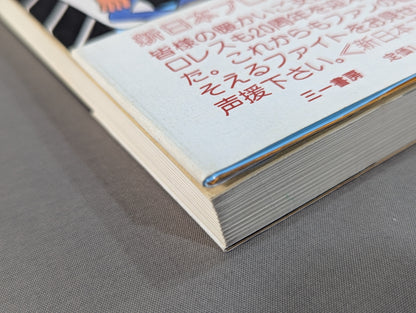 新日本プロ
皆様の暖かいご支
ロレスも20周年を迎
た。これからもファンの
そえるファイトをお見せ
声援下さい。《新日本
三一書房
定価